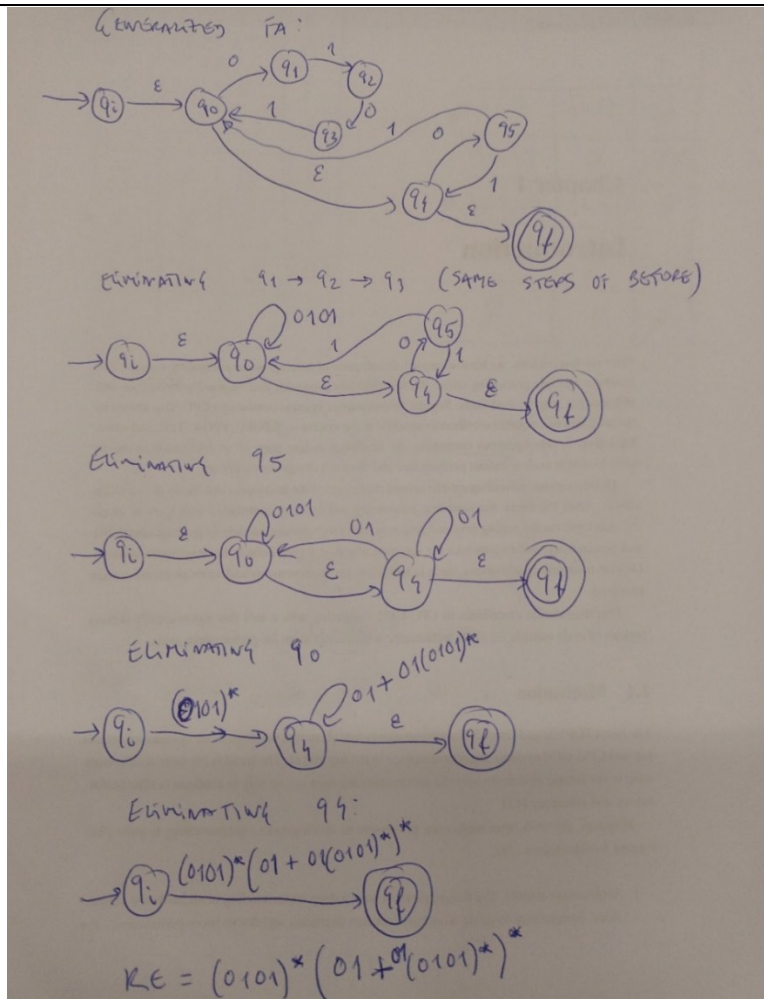 GENERALIZED FA:
0 1
qi ε q0 q1 q2
1 q3 0
1 0 q5
ε q4 1
ε qf
ELIMINATING q1 → q2 → q3 (SAME STEPS OF BEFORE)
0101
qi ε q0 1 q5
0 1
ε q4 ε qf
ELIMINATING q5
0101 01 01
qi ε q0 ε q4 ε qf
ELIMINATING q0
(0101)* 01 + 01(0101)*
qi q4 ε qf
ELIMINATING q4:
(0101)*(01 + 01(0101)*)*
qi qf
RE = (0101)*(01 + 01(0101)*)*